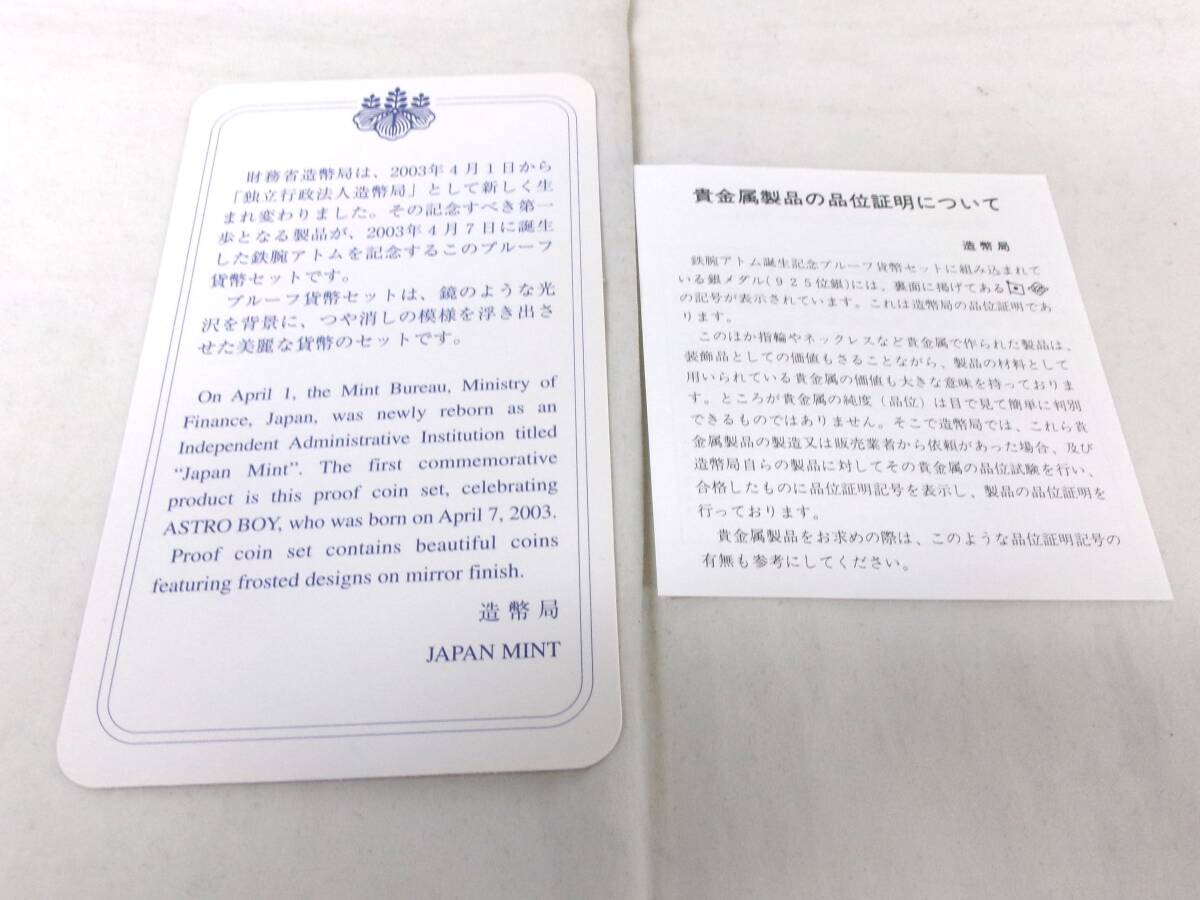 財務省造幣局は、2003年4月1日から
「独立行政法人造幣局」として新しく生
まれ変わりました。その記念すべき第一
歩となる製品が、2003年4月7日に誕生
した鉄腕アトムを記念するこのプルーフ
貨幣セットです。
プルーフ貨幣セットは、鏡のような光
沢を背景に、つや消しの模様を浮き出さ
せた美麗な貨幣のセットです。
On April 1, the Mint Bureau, Ministry of
Finance, Japan, was newly reborn as an
Independent Administrative Institution titled
“Japan Mint”. The first commemorative
product is this proof coin set, celebrating
ASTRO BOY, who was born on April 7, 2003.
Proof coin set contains beautiful coins
featuring frosted designs on mirror finish.
造幣局
JAPAN MINT
貴金属製品の品位証明について
造幣局
鉄腕アトム誕生記念プルーフ貨幣セットに組み込まれて
いる銀メダル(925位銀)には、裏面に掲げてある
の記号が表示されています。これは造幣局の品位証明であ
ります。
このほか指輪やネックレスなど貴金属で作られた製品は、
装飾品としての価値もさることながら、製品の材料として
用いられている貴金属の価値も大きな意味を持っておりま
す。ところが貴金属の純度(品位)は目で見て簡単に判別
できるものではありません。そこで造幣局では、これら貴
金属製品の製造又は販売業者から依頼があった場合、及び
造幣局自らの製品に対してその貴金属の品位試験を行い、
合格したものに品位証明記号を表示し、製品の品位証明を
行っております。
貴金属製品をお求めの際は、このような品位証明記号の
有無も参考にしてください。